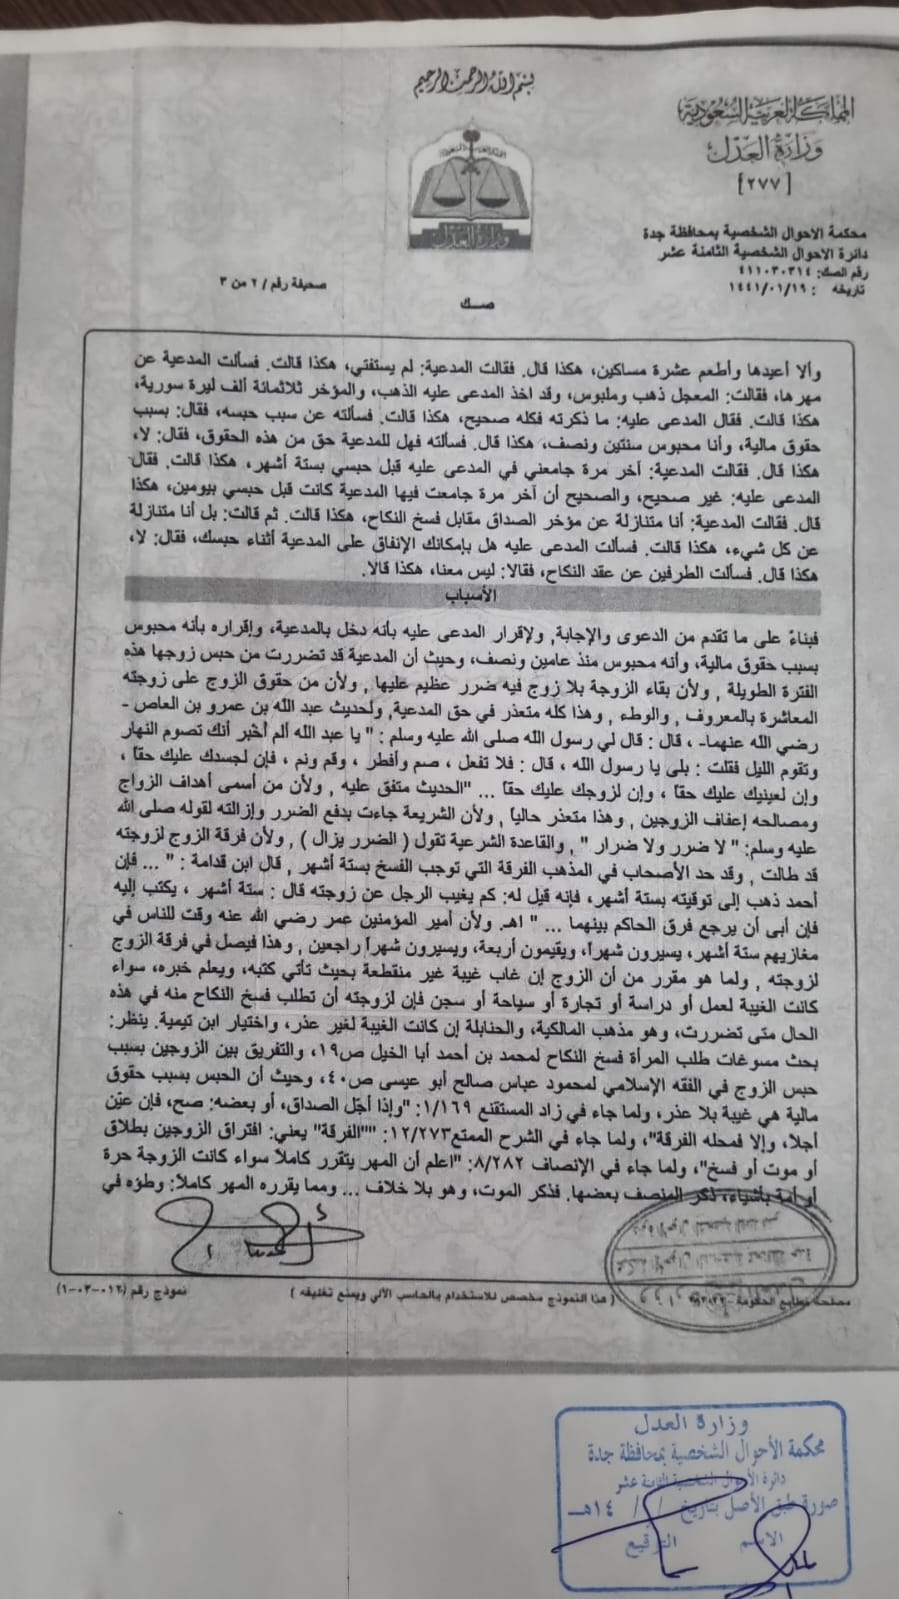 بسم الله الرحمن الرحيم
المملكة العربية السعودية
وزارة العدل
[٢٧٧]
وزارة العدل
محكمة الاحوال الشخصية بمحافظة جدة
دائرة الاحوال الشخصية الثامنة عشر
رقم الصك: ٤١١٠٣٠٣١٤
تاريخه : ١٤٤١/٠١/١٩
صحيفة رقم / ٢ من ٣
صك
وألا أعيدها وأطعم عشرة مساكين، هكذا قال. فقالت المدعية: لم يستفتي، هكذا قالت. فسألت المدعية عن
مهرها، فقالت: المعجل ذهب وملبوس، وقد اخذ المدعى عليه الذهب، والمؤخر ثلاثمائة ألف ليرة سورية،
هكذا قالت. فقال المدعى عليه: ما ذكرته فكله صحيح، هكذا قالت. فسألته عن سبب حبسه، فقال: بسبب
حقوق مالية، وأنا محبوس سنتين ونصف، هكذا قال. فسألته فهل للمدعية حق من هذه الحقوق، فقال: لا،
هكذا قال. فقالت المدعية: آخر مرة جامعني في المدعى عليه قبل حبسي بستة أشهر، هكذا قالت. فقال
المدعى عليه: غير صحيح، والصحيح أن آخر مرة جامعت فيها المدعية كانت قبل حبسي بيومين، هكذا
قال. فقالت المدعية: أنا متنازلة عن مؤخر الصداق مقابل فسخ النكاح، هكذا قالت. ثم قالت: بل أنا متنازلة
عن كل شيء، هكذا قالت. فسألت المدعى عليه هل بإمكانك الإنفاق على المدعية أثناء حبسك، فقال: لا،
هكذا قال. فسألت الطرفين عن عقد النكاح، فقالا: ليس معنا، هكذا قالا.
الأسباب
فبناءً على ما تقدم من الدعوى والإجابة, ولإقرار المدعى عليه بأنه دخل بالمدعية، وإقراره بأنه محبوس
بسبب حقوق مالية، وأنه محبوس منذ عامين ونصف، وحيث أن المدعية قد تضررت من حبس زوجها هذه
الفترة الطويلة , ولأن بقاء الزوجة بلا زوج فيه ضرر عظيم عليها , ولأن من حقوق الزوج على زوجته
المعاشرة بالمعروف , والوطء , وهذا كله متعذر في حق المدعية, ولحديث عبد الله بن عمرو بن العاص -
رضي الله عنهما- ، قال : قال لي رسول الله صلى الله عليه وسلم : " يا عبد الله ألم أخبر أنك تصوم النهار
وتقوم الليل فقلت : بلى يا رسول الله ، قال : فلا تفعل ، صم وأفطر ، وقم ونم ، فإن لجسدك عليك حقاً ،
وإن لعينيك عليك حقاً ، وإن لزوجك عليك حقاً ... "الحديث متفق عليه , ولأن من أسمى أهداف الزواج
ومصالحه إعفاف الزوجين , وهذا متعذر حالياً , ولأن الشريعة جاءت بدفع الضرر وإزالته لقوله صلى الله
عليه وسلم: " لا ضرر ولا ضرار " , والقاعدة الشرعية تقول ( الضرر يزال ) , ولأن فرقة الزوج لزوجته
قد طالت , وقد حد الأصحاب في المذهب الفرقة التي توجب الفسخ بستة أشهر , قال ابن قدامة : " ... فإن
أحمد ذهب إلى توقيته بستة أشهر، فإنه قيل له: كم يغيب الرجل عن زوجته قال : ستة أشهر ، يكتب إليه
فإن أبى أن يرجع فرق الحاكم بينهما ... " اهـ. ولأن أمير المؤمنين عمر رضي الله عنه وقت للناس في
مغازيهم ستة أشهر، يسيرون شهراً، ويقيمون أربعة، ويسيرون شهراً راجعين , وهذا فيصل في فرقة الزوج
لزوجته , ولما هو مقرر من أن الزوج إن غاب غيبة غير منقطعة بحيث تأتي كتبه، ويعلم خبره، سواء
كانت الغيبة لعمل أو دراسة أو تجارة أو سياحة أو سجن فإن لزوجته أن تطلب فسخ النكاح منه في هذه
الحال متى تضررت، وهو مذهب المالكية، والحنابلة إن كانت الغيبة لغير عذر، واختيار ابن تيمية. ينظر:
بحث مسوغات طلب المرأة فسخ النكاح لمحمد بن أحمد أبا الخيل ص١٩، والتفريق بين الزوجين بسبب
حبس الزوج في الفقه الإسلامي لمحمود عباس صالح أبو عيسى ص٤٠، وحيث أن الحبس بسبب حقوق
مالية هي غيبة بلا عذر، ولما جاء في زاد المستقنع ١/١٦٩: "وإذا أجّل الصداق، أو بعضه: صح، فإن عيّن
أجلا، وإلا فمحله الفرقة"، ولما جاء في الشرح الممتع١٢/٢٧٣: ""الفرقة" يعني: افتراق الزوجين بطلاق
أو موت أو فسخ"، ولما جاء في الإنصاف ٨/٢٨٢: "اعلم أن المهر يتقرر كاملاً سواء كانت الزوجة حرة
أو أمة بأشياء، ذكر المنصف بعضها. فذكر الموت، وهو بلا خلاف ... ومما يقرره المهر كاملاً: وطؤه في
مصلحة مطابع الحكومة
( هذا النموذج مخصص للاستخدام بالحاسب الآلي ويمنع تغليفه )
نموذج رقم (١٢-٠٣-٠١)
وزارة العدل
محكمة الأحوال الشخصية بمحافظة جدة
دائرة الأحوال الشخصية الثامنة عشر
صورة طبق الأصل بتاريخ / / ١٤هـ
الاسم التوقيع